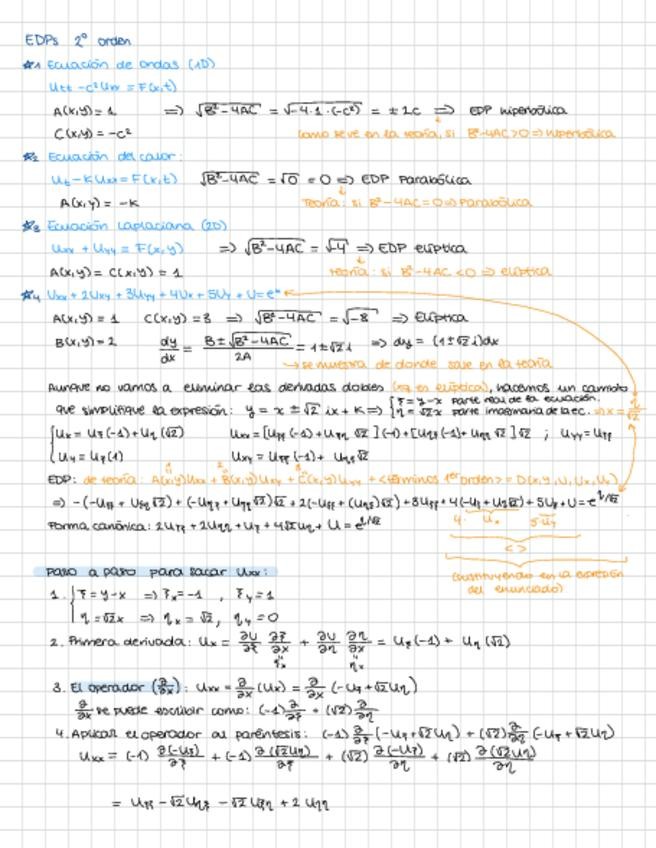 EDPs 2º orden
☆1 Ecuación de ondas (1D)
Utt - c²Uxx = F(x,t)
A(x,y) = 1 ⇒ √(B²-4AC) = √(-4·1·(-c²)) = ±2c ⇒ EDP hiperbólica
C(x,y) = -c²
como se ve en la teoría, si B²-4AC>0 ⇒ hiperbólica
☆2 Ecuación del calor:
Ut - KUxx = F(x,t) √(B²-4AC) = √0 = 0 ⇒ EDP Parabólica
A(x,y) = -K
Teoría: si B²-4AC=0 ⇒ Parabólica
☆3 Ecuación Laplaciana (2D)
Uxx + Uyy = F(x,y) ⇒ √(B²-4AC) = √-4 ⇒ EDP elíptica
A(x,y) = C(x,y) = 1
teoría: si B²-4AC <0 ⇒ elíptica
☆4 Uxx + 2Uxy + 3Uyy + 4Ux + 5Uy + U = eˣ
A(x,y) = 1 C(x,y) = 3 ⇒ √(B²-4AC) = √-8 ⇒ Elíptica
B(x,y) = 2 dy/dx = (B±√(B²-4AC))/2A = 1±√2i ⇒ dy = (1±√2i)dx
→ se muestra de donde sale en la teoría
Aunque no vamos a eliminar las derivadas dobles (xq es elíptica), hacemos un cambio
que simplifique la expresión: y = x ± √2 ix + K ⇒ { ξ = y-x parte real de la ecuación.
η = √2x parte imaginaria de la ec. ⇒ x = η/√2
{ Ux = Uξ(-1) + Uη(√2) Uxx = [Uξξ(-1) + Uξη √2](-1) + [Uηξ(-1) + Uηη √2]√2 ; Uyy = Uξξ
Uy = Uξ(1) Uxy = Uξξ(-1) + Uηξ√2
EDP: de teoría: A(x,y)Uxx + B(x,y)Uxy + C(x,y)Uyy + <términos 1er orden> = D(x,y,U,Ux,Uy)
⇒ -(-Uξξ + Uξη√2) + (-Uηξ + Uηη√2)√2 + 2(-Uξξ + (Uηξ)√2) + 3Uξξ + 4(-Uξ + Uη√2) + 5Uξ + U = e^η/√2
4·Ux 5·Uy
Forma canónica: 2Uξξ + 2Uηη + Uξ + 4√2Uη + U = e^η/√2
< >
(sustituyendo en la expresión
del enunciado)
Paso a paso para sacar Uxx:
1. { ξ = y-x ⇒ ξx = -1 , ξy = 1
η = √2x ⇒ ηx = √2, ηy = 0
2. Primera derivada: Ux = ∂U/∂ξ ∂ξ/∂x + ∂U/∂η ∂η/∂x = Uξ(-1) + Uη(√2)
ξx ηx
3. El operador (∂/∂x): Uxx = ∂/∂x (Ux) = ∂/∂x (-Uξ + √2Uη)
∂/∂x se puede escribir como: (-1)∂/∂ξ + (√2)∂/∂η
4. Aplicar el operador al paréntesis: (-1)∂/∂ξ(-Uξ + √2Uη) + (√2)∂/∂η(-Uξ + √2Uη)
Uxx = (-1) ∂(-Uξ)/∂ξ + (-1) ∂(√2Uη)/∂ξ + (√2) ∂(-Uξ)/∂η + (√2) ∂(√2Uη)/∂η
= Uξξ - √2Uηξ - √2Uξη + 2Uηη